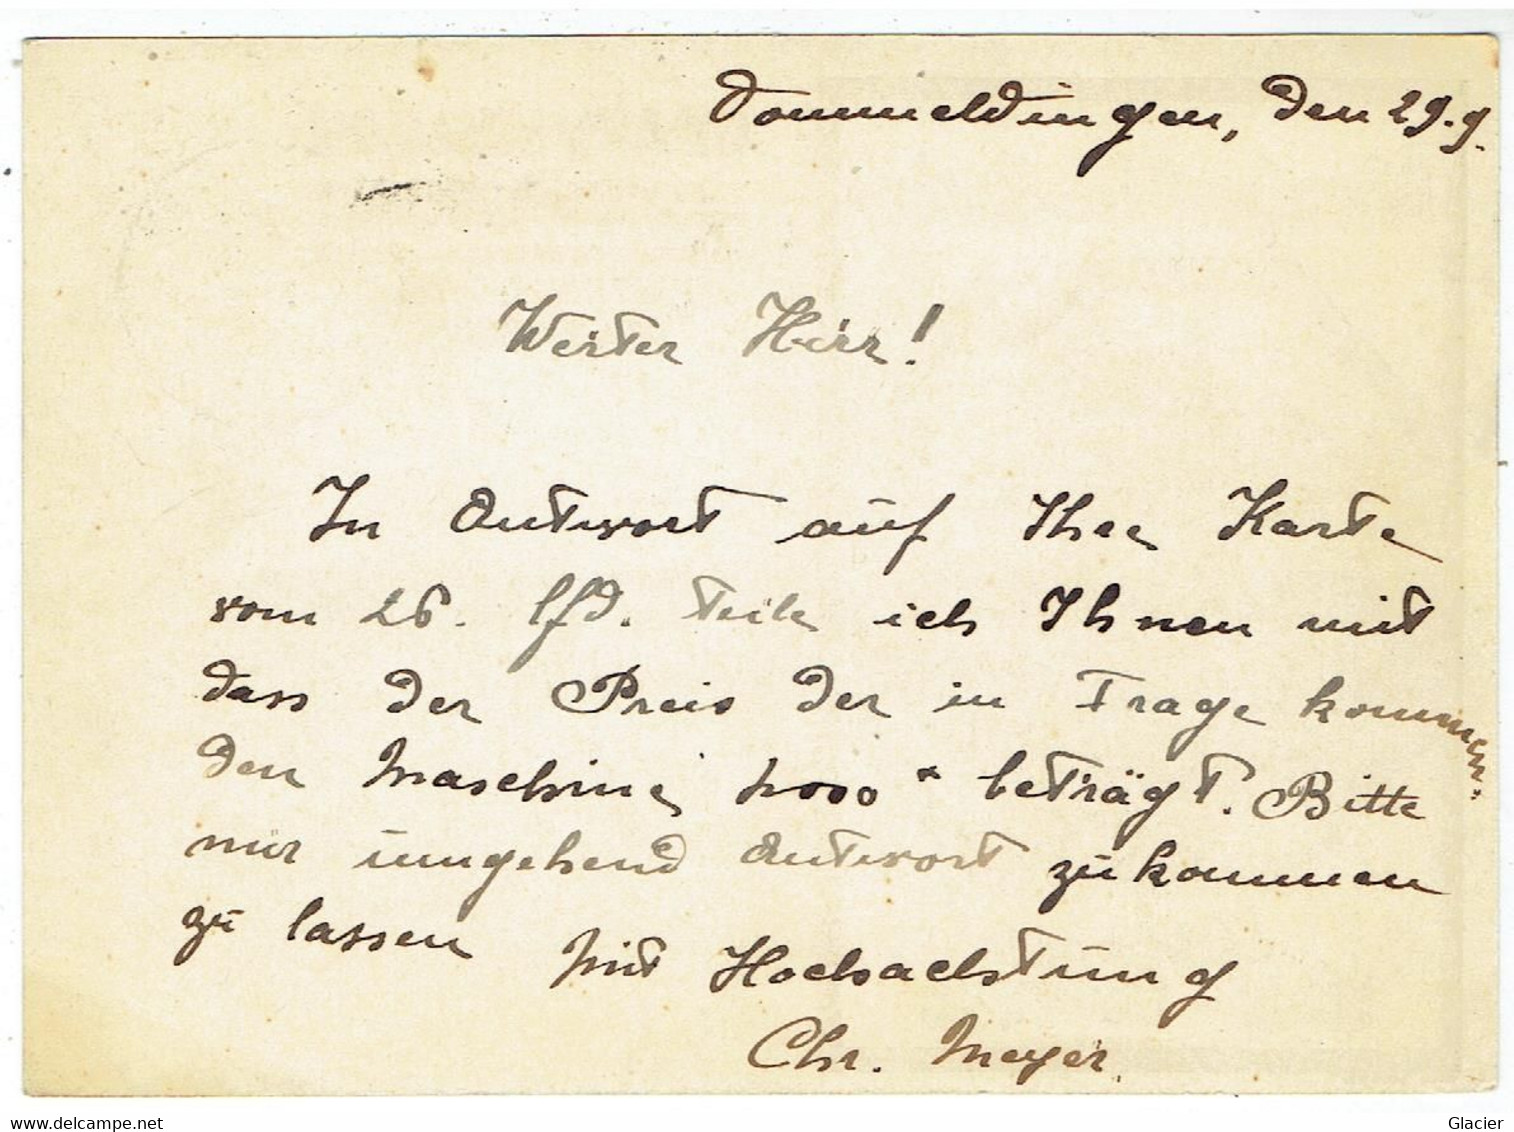 Dommeldingen, den 29.9.
Werter Herr!
In Antwort auf Ihre Karte
vom 26. lfd. teile ich Ihnen mit
dass der Preis der in Frage kommen-
den Maschine beträgt. Bitte
mir umgehend Antwort zukommen
zu lassen Mit Hochachtung
Chr. Meyer.
www.delcampe.net
Glacier